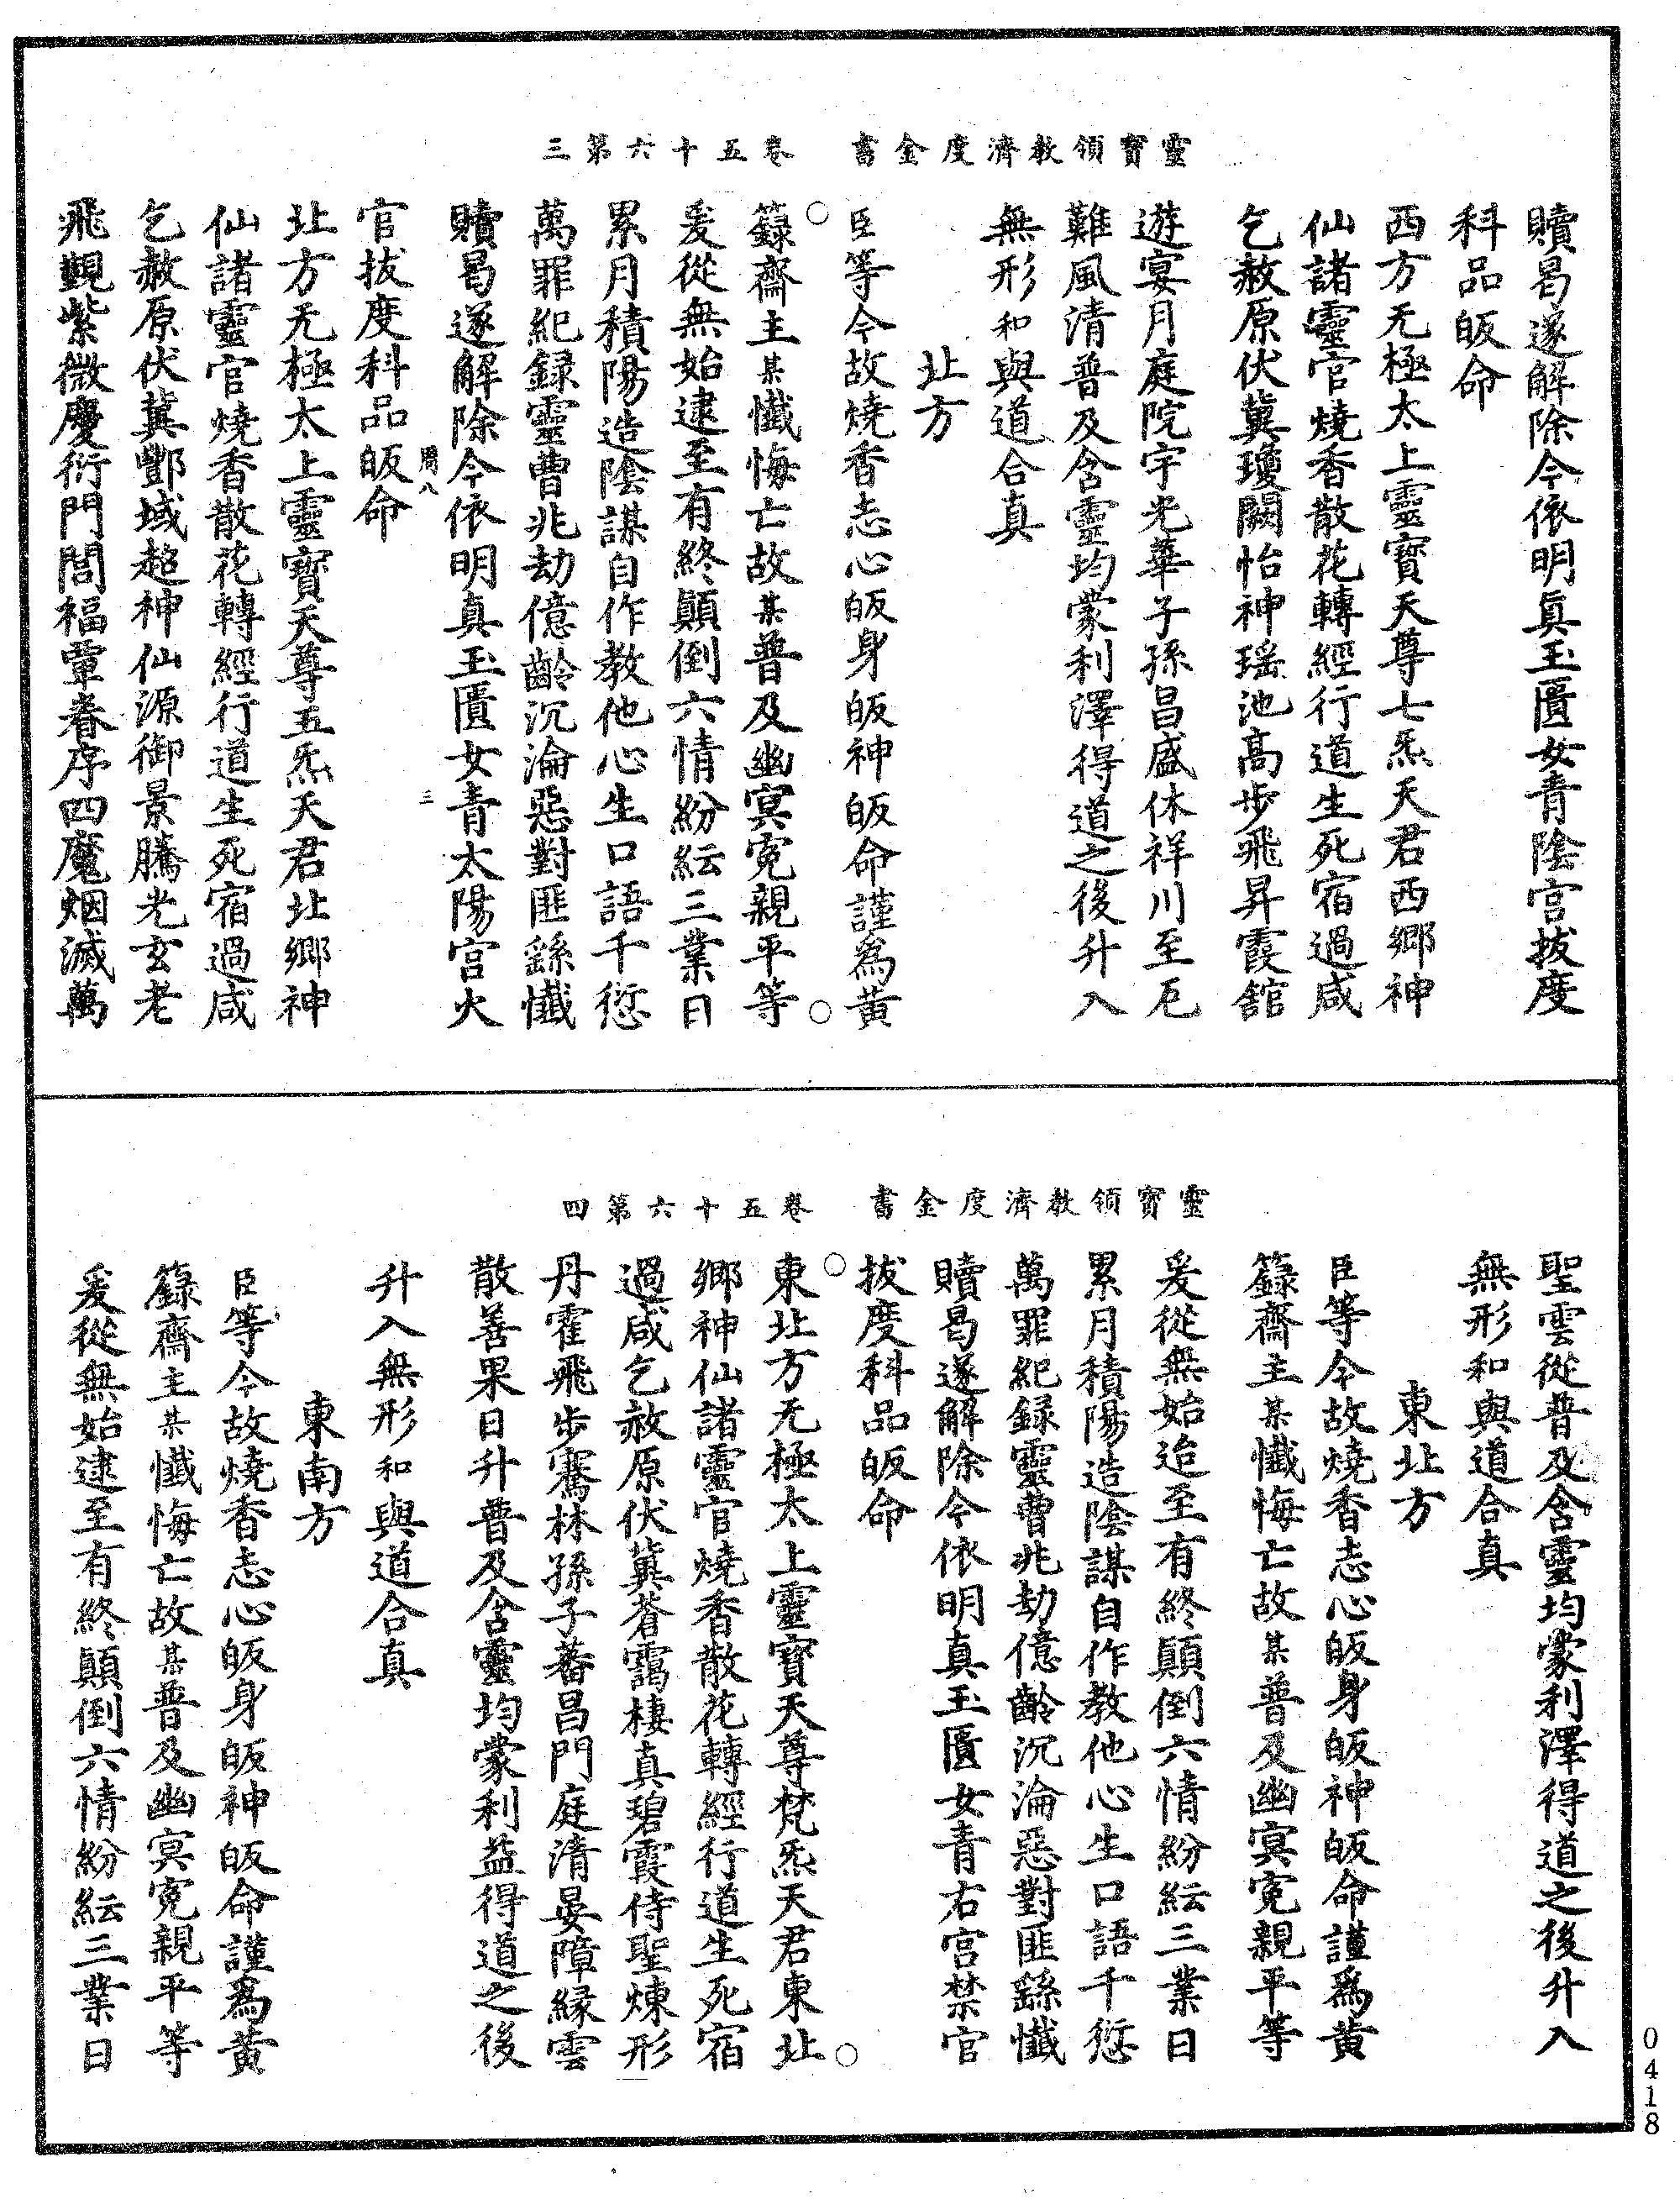 靈寶領教濟度金書　卷五十六第三
贖曷遂解除今依明真玉匱女青陰宫拔度
科品皈命
西方无極太上靈寶天尊七炁天君西鄉神
仙諸靈官燒香散花轉經行道生死宿過咸
乞赦原伏冀瓊闕怡神瑶池高步飛昇霞館
遊宴月庭院宇光華子孫昌盛休祥川至厄
難風清普及含靈均蒙利澤得道之後升入
無形和與道合真
北方
臣等今故燒香志心皈身皈神皈命謹為黄
籙齋主某懺悔亡故某普及幽冥寃親平等
爰從無始逮至有終顛倒六情紛紜三業日
累月積陽造陰謀自作教他心生口語千愆
萬罪紀録靈曹兆劫億齡沉淪惡對匪繇懺
贖曷遂解除今依明真玉匱女青太陽宫火
官拔度科品皈命
周八　三
北方无極太上靈寶天尊五炁天君北鄉神
仙諸靈官燒香散花轉經行道生死宿過咸
乞赦原伏冀酆城超神仙源御景騰光玄老
飛觀紫微慶衍門閭福覃眷序四魔烟滅萬
靈寶領教濟度金書　卷五十六第四
聖雲從普及含靈均蒙利澤得道之後升入
無形和與道合真
東北方
臣等今故燒香志心皈身皈神皈命謹為黄
籙齋主某懺悔亡故某普及幽冥寃親平等
爰從無始迨至有終顛倒六情紛紜三業日
累月積陽造陰謀自作教他心生口語千愆
萬罪紀録靈曹兆劫億齡沉淪惡對匪繇懺
贖曷遂解除今依明真玉匱女青右宫禁官
拔度科品皈命
東北方无極太上靈寶天尊梵炁天君東北
鄉神仙諸靈官燒香散花轉經行道生死宿
過咸乞赦原伏冀蒼靄棲真碧霞侍聖煉形
丹霍飛步騫林孫子蕃昌門庭清晏障縁雲
散善果日升普及含靈均蒙利益得道之後
升入無形和與道合真
東南方
臣等今故燒香志心皈身皈神皈命謹為黄
籙齋主某懺悔亡故某普及幽冥寃親平等
爰從無始逮至有終顛倒六情紛紜三業日
0418